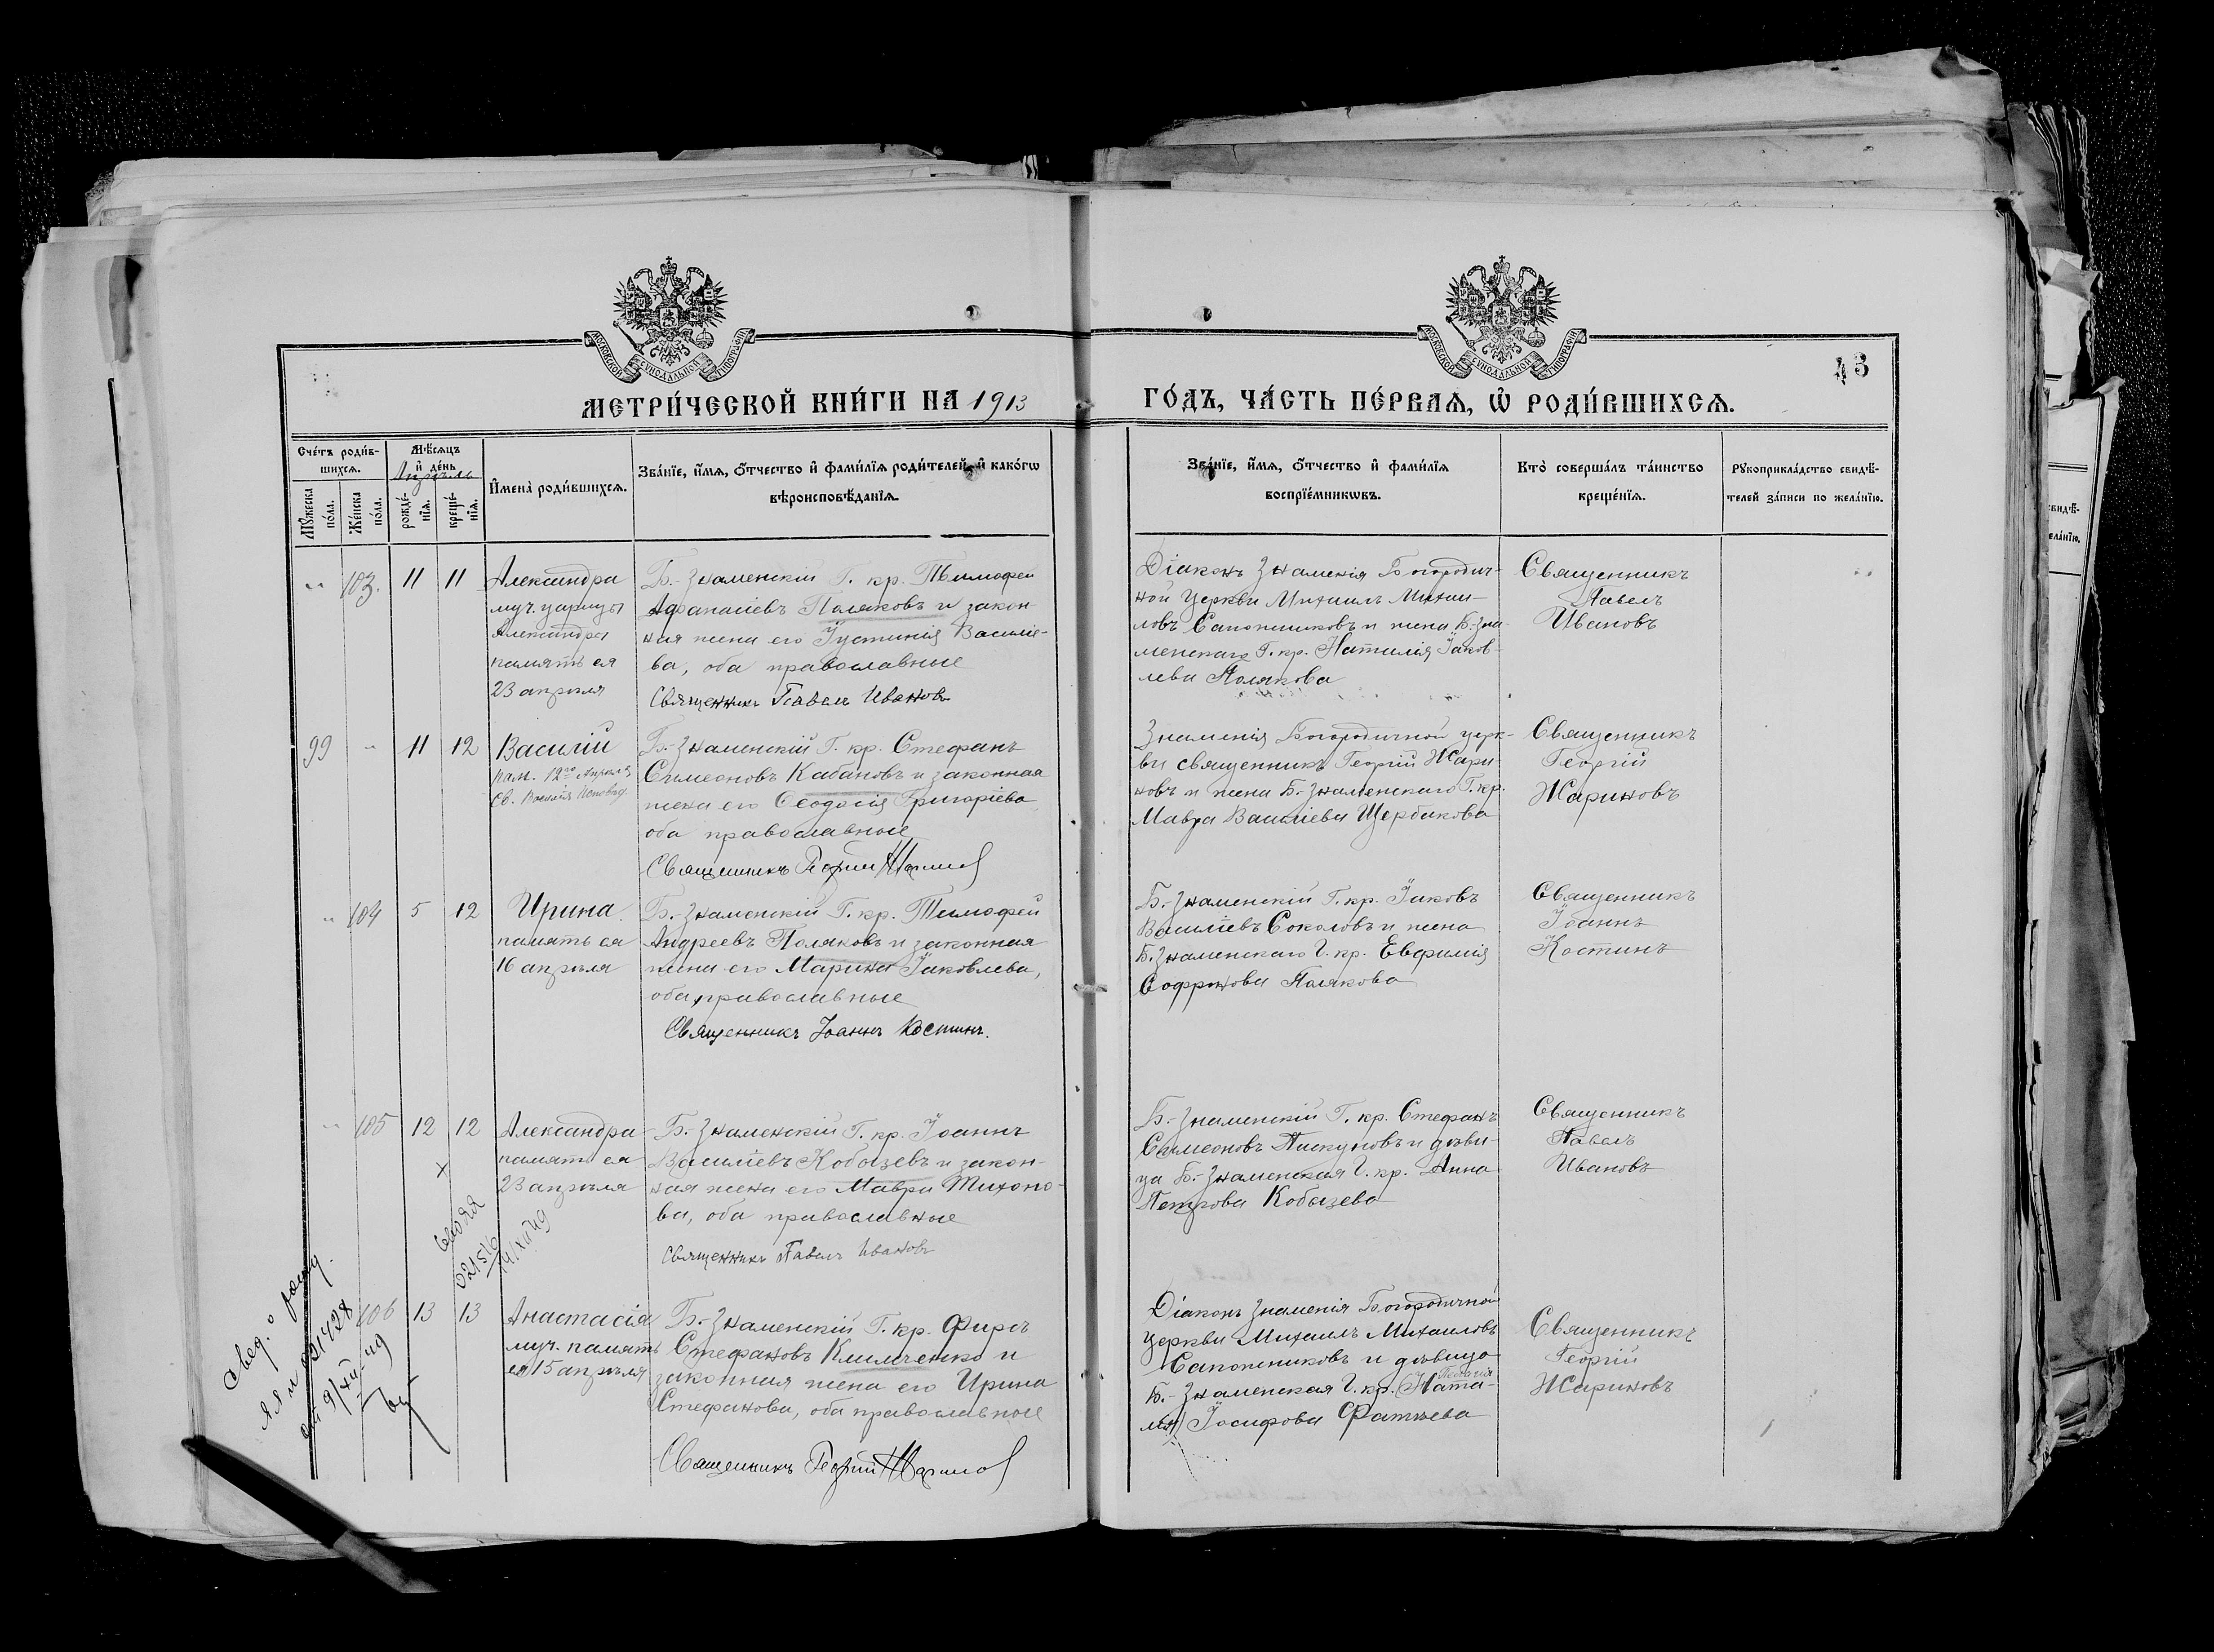 МОСКОВСКОЙ СѴНОДАЛЬНОЙ ТИПОГРАФІИ
МОСКОВСКОЙ СѴНОДАЛЬНОЙ ТИПОГРАФІИ
43
МЕТРИ́ЧЕСКОЙ КНИ́ГИ НА 1913
ГО́ДЪ, ЧА́СТЬ ПЕ́РВАѦ, Ѡ҆ РОДИ́ВШИХСѦ.
Сче́тъ роди́в-
шихсѧ.
Мꙋжеска по́ла.
Же́нска по́ла.
Мѣ́сѧцъ
и҆ де́нь
Апрѣль
рожде́-
нїѧ.
креще́-
нїѧ.
И҆мена̀ роди́вшихсѧ.
Зва́нїе, и҆́мѧ, ѻ҆́тчество и҆ фами́лїѧ роди́телей, и҆ како́гѡ
вѣроисповѣ́данїѧ.
Зва́нїе, и҆́мѧ, ѻ҆́тчество и҆ фами́лїѧ
воспрїе́мникѡвъ.
Кто̀ соверша́лъ та́инство
креще́нїѧ.
Рꙋкоприкла́дство свидѣ́-
телей за́писи по жела́нїю.
103. 11 11
Александра
муч. царицы
Александры
память ея
23 апрѣля
Б.-Знаменскій Г. кр. Тимофей
Аѳанасіевъ Поляковъ и закон-
ная жена его Іустинія Василіе-
ва, оба православные
Священникъ Павелъ Ивановъ
Діаконъ Знаменія Богородич-
ной Церкви Михаилъ Михаи-
ловъ Сапожниковъ и жена Б.-Зна-
менскаго Г. кр. Наталія Іаков-
лева Полякова
Священникъ
Павелъ
Ивановъ
99 " 11 12
Василій
пам. 12го Апрѣля
Св. Василія Исповѣд.
Б.-Знаменскій Г. кр. Стефанъ
Симеоновъ Кабановъ и законная
жена его Ѳеодосія Григоріева
оба православные
Священникъ Георгій Жариновъ
Знаменія Богородичной церк-
ви священникъ Георгій Жари-
новъ и жена Б.-Знаменскаго Г. кр.
Мавра Василіева Щербакова
Священникъ
Георгій
Жариновъ
" 104 5 12
Ирина
память ея
16 апрѣля
Б.-Знаменскій Г. кр. Тимофей
Андреевъ Поляковъ и законная
жена его Марина Іаковлева,
оба православные
Священникъ Іоаннъ Костинъ.
Б.-Знаменскій Г. кр. Іаковъ
Василіевъ Соколовъ и жена
Б. Знаменскаго Г. кр. Евфимія
Софронова Полякова
Священникъ
Іоаннъ
Костинъ
" 105 12 12
Александра
память ея
23 апрѣля
Б.-Знаменскій Г. кр. Іоаннъ
Василіевъ Кобызевъ и закон-
ная жена его Мавра Тихоно-
ва, оба православные
Священникъ Павелъ Ивановъ
Б.-Знаменскій Г. кр. Стефанъ
Симеоновъ Пискуновъ и дѣви-
ца Б.-Знаменская Г. кр. Анна
Петрова Кобызева
Священникъ
Павелъ
Ивановъ
106 13 13
Анастасія
муч. память
ея 15 апрѣля
Б.-Знаменскій Г. кр. Фирсъ
Стефановъ Климченко и
законная жена его Ирина
Стефанова, оба православные
Священникъ Георгій Жариновъ
Діаконъ Знаменія Богородичной
церкви Михаилъ Михаиловъ
Сапожниковъ и дѣвица
Б.-Знаменская Г. кр. (Ната-
лія) Іосифова Фатѣева
Священникъ
Георгій
Жариновъ